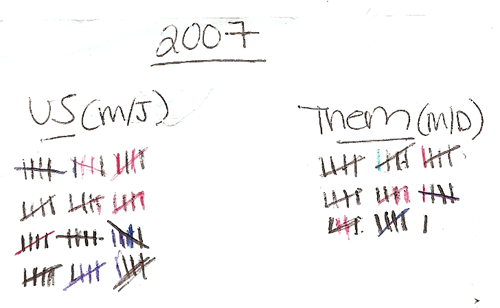 2007
US (M/J)
Them (M/D)